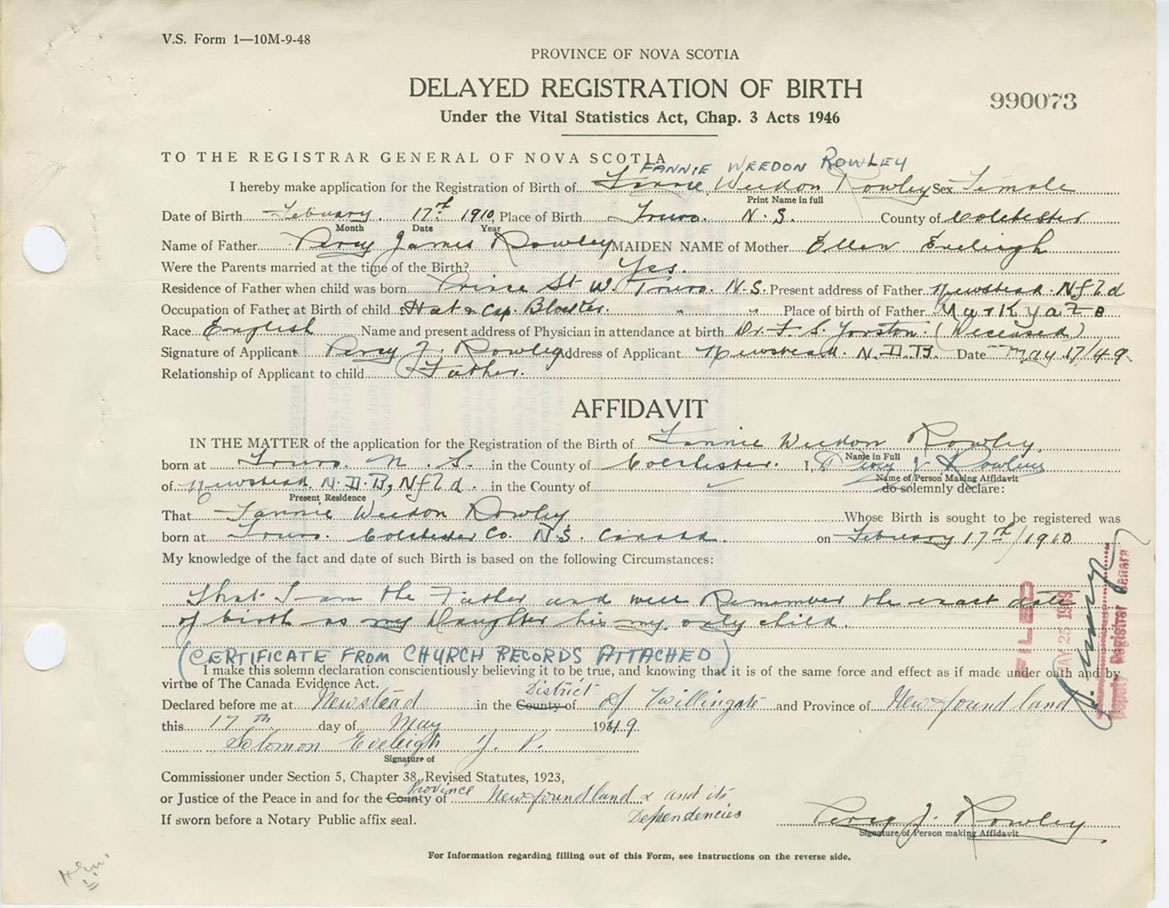 V.S. Form 1—10M-9-48
PROVINCE OF NOVA SCOTIA
DELAYED REGISTRATION OF BIRTH
990073
Under the Vital Statistics Act, Chap. 3 Acts 1946
TO THE REGISTRAR GENERAL OF NOVA SCOTIA
FANNIE WEEDON ROWLEY
I hereby make application for the Registration of Birth of Fannie Weedon Rowley Sex Female
Print Name in full
Date of Birth February. 17th 1910, Place of Birth Truro. N.S. County of Colchester
Month Date Year
Name of Father Percy James Rowley MAIDEN NAME of Mother Ellen Eveleigh
Were the Parents married at the time of the Birth? Yes.
Residence of Father when child was born Prince St W. Truro. N.S. Present address of Father Newstead Nfld
Occupation of Father at Birth of child Hat & Cap. Blocker. " " Place of birth of Father
Race English Name and present address of Physician in attendance at birth Dr. F. S. Yorston. (Deceased)
Signature of Applicant Percy J. Rowley Address of Applicant Newstead. N.D.B. Date May 17/49.
Relationship of Applicant to child Father.
AFFIDAVIT
IN THE MATTER of the application for the Registration of the Birth of Fannie Weedon Rowley.
Name in Full
born at Truro. N.S. in the County of Colchester. I, Percy J Rowley
Name of Person Making Affidavit
of Newstead. N.D.B, Nfld. in the County of do solemnly declare:
Present Residence
That Fannie Weedon Rowley Whose Birth is sought to be registered was
born at Truro. Colchester Co. N.S. Canada. on February 17th/1910
My knowledge of the fact and date of such Birth is based on the following Circumstances:
That I am the Father and well Remember the exact date
of birth as my Daughter his my only child.
(CERTIFICATE FROM CHURCH RECORDS ATTACHED)
I make this solemn declaration conscientiously believing it to be true, and knowing that it is of the same force and effect as if made under oath and by
virtue of The Canada Evidence Act.
District
Declared before me at Newstead in the County of Of Twillingate and Province of Newfoundland
this 17th day of May 1949.
Solomon Eveleigh J. P.
Signature of
Commissioner under Section 5, Chapter 38, Revised Statutes, 1923,
Province
or Justice of the Peace in and for the County of Newfoundland & and its
Dependencies
If sworn before a Notary Public affix seal.
Percy J. Rowley
Signature of Person making Affidavit
For Information regarding filling out of this Form, see instructions on the reverse side.
FILED
MAY 25 1949
Deputy Registrar General